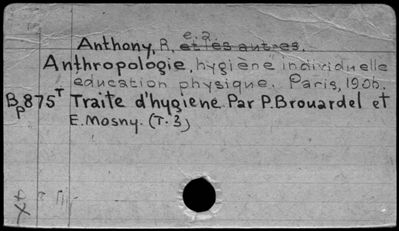 e.a.
Anthony, R. et les autres.
Anthropologie, hygiène individuelle
education physique. Paris, 1906.
Bp875T Traite d'hygiene Par P. Brouardel et
E. Mosny. (T. 3)